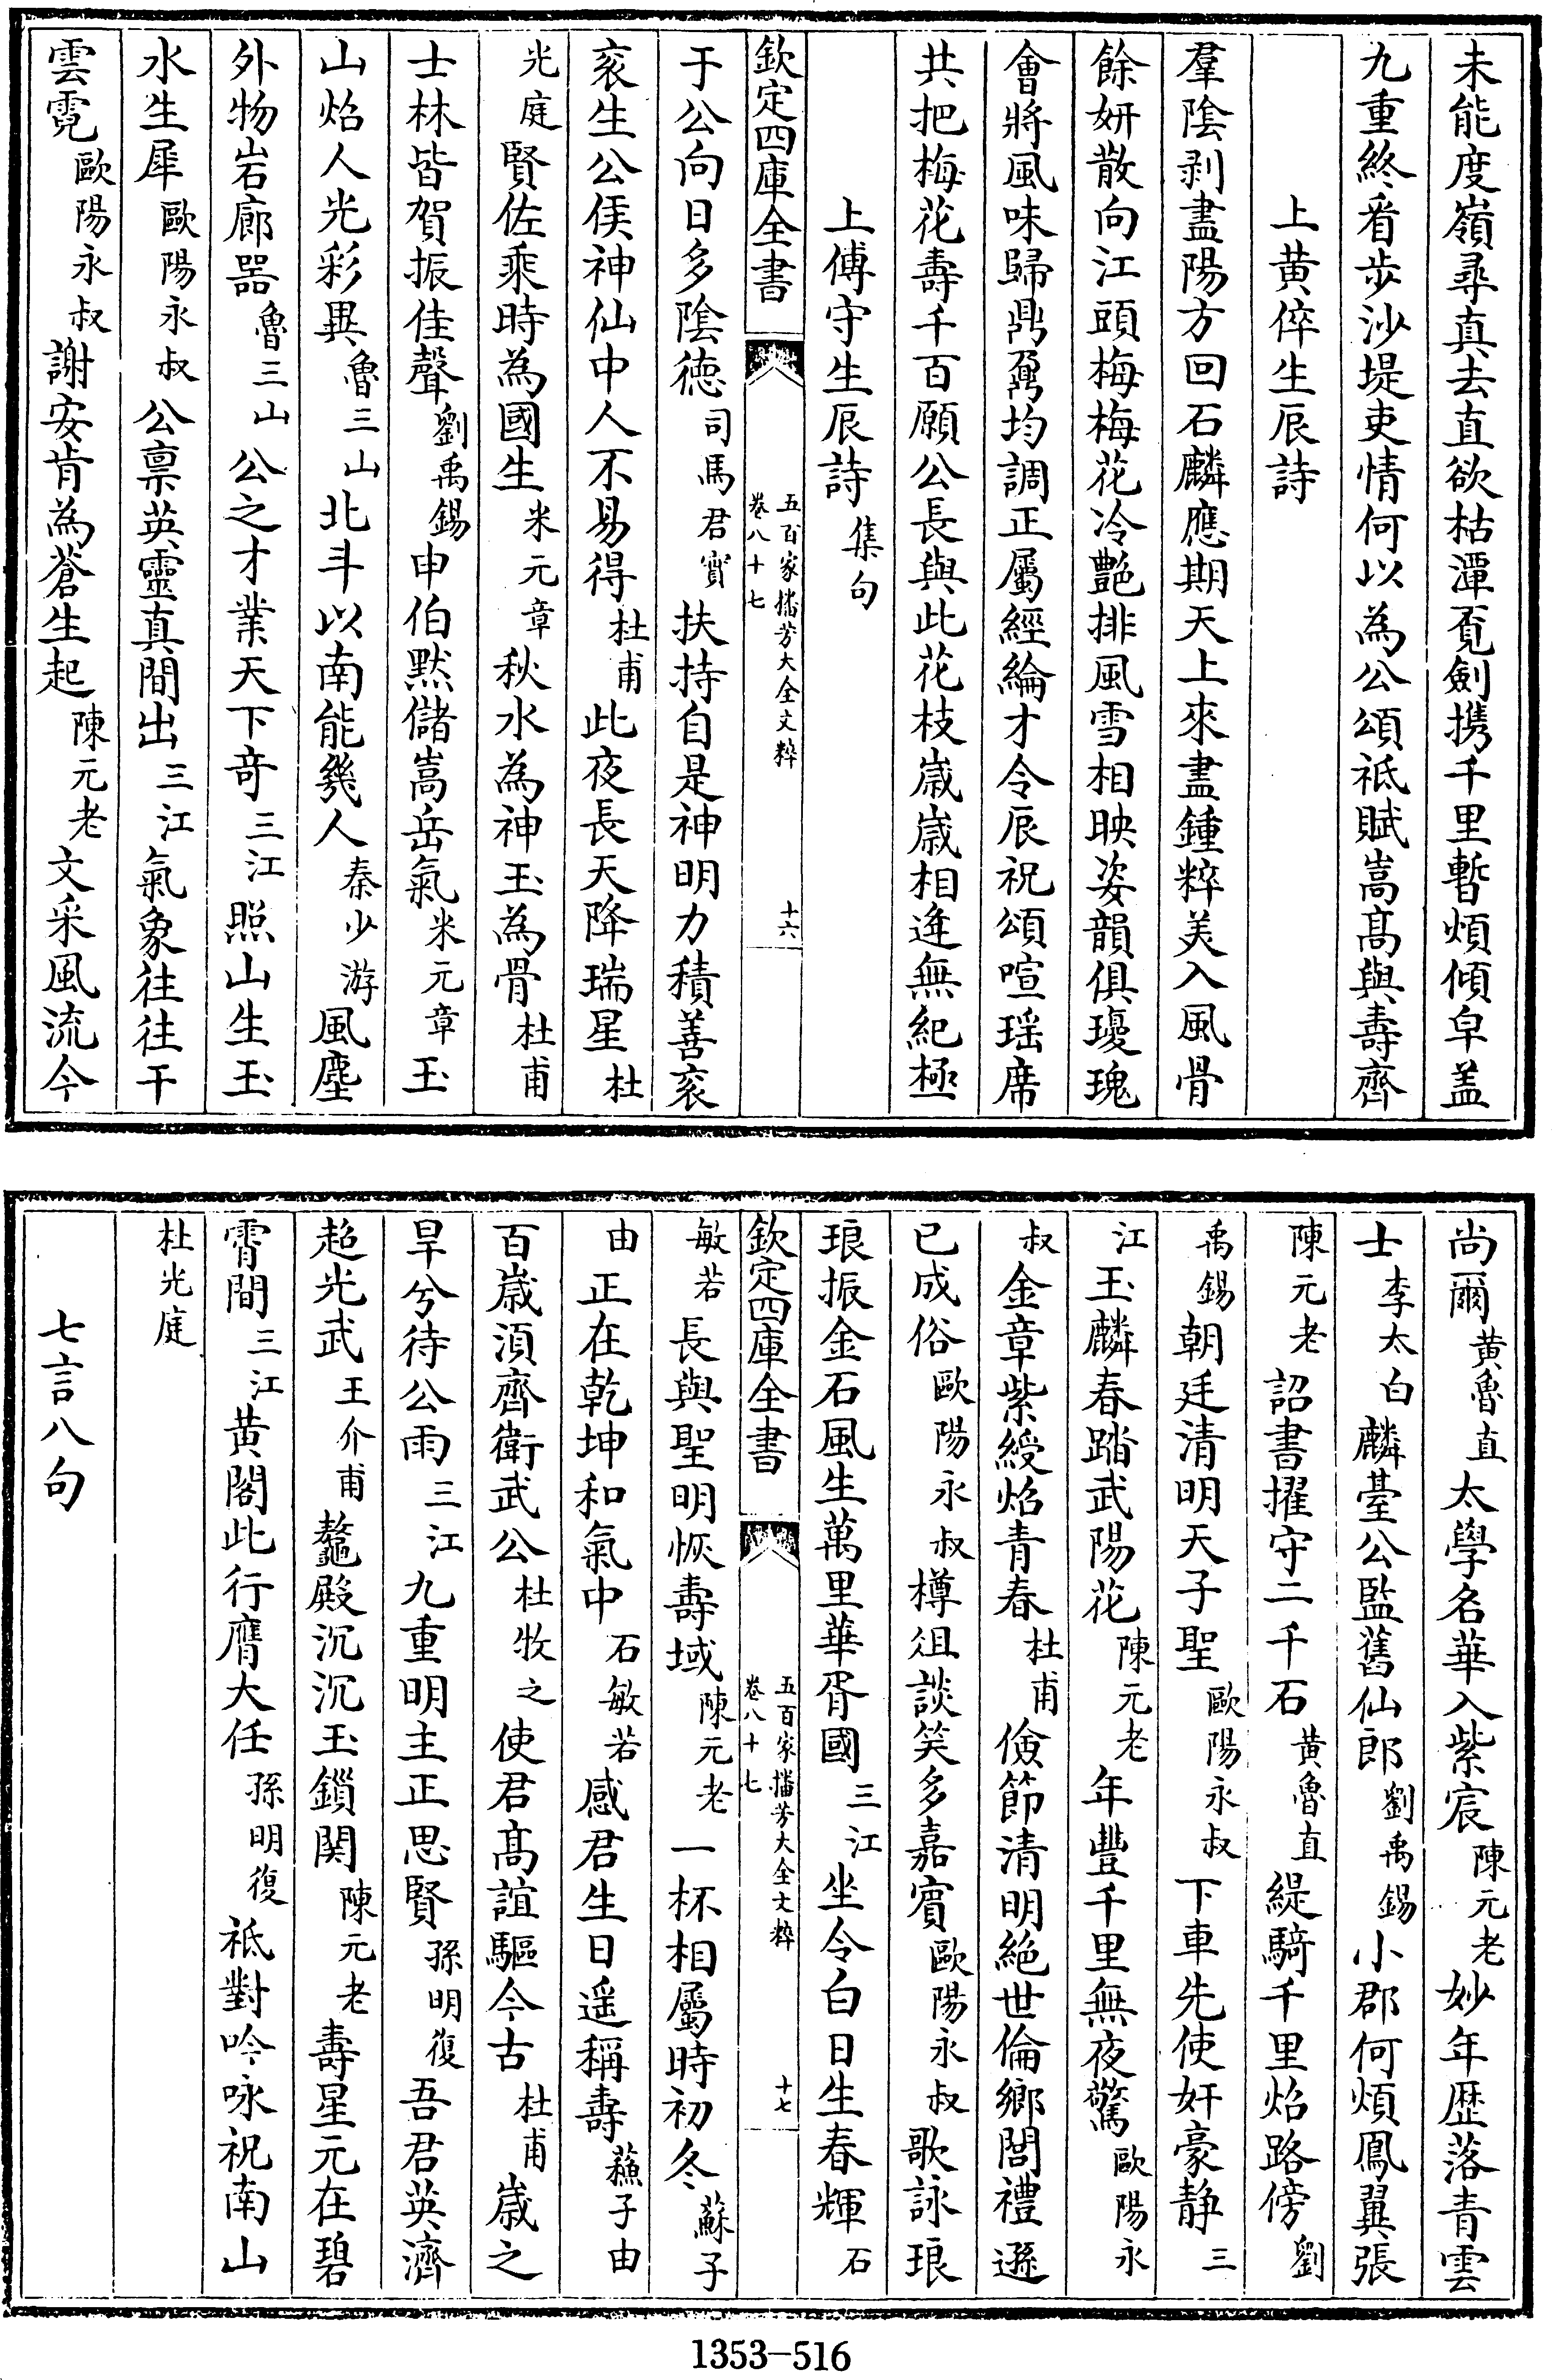 未能度嶺尋真去直欲枯潭覔劍携千里暫煩傾皁盖
九重終看步沙堤吏情何以為公頌祗賦嵩髙與壽齊
上黄倅生辰詩
羣陰剥盡陽方回石麟應期天上來盡鍾粹美入風骨
餘妍散向江頭梅梅花冷艷排風雪相映姿韻俱瓊瑰
會將風味歸鼎鼐均調正屬經綸才令辰祝頌喧瑶席
共把梅花壽千百願公長與此花枝歳歳相逢無紀極
上傅守生辰詩集句
欽定四庫全書
五百家播芳大全文粹
卷八十七
十六
于公向日多隂徳司馬君實扶持自是神明力積善衮
衮生公侯神仙中人不易得杜甫此夜長天降瑞星杜
光庭賢佐乘時為國生米元章秋水為神玉為骨杜甫
士林皆賀振佳聲劉禹錫申伯黙儲嵩岳氣米元章玉
山熖人光彩異魯三山北斗以南能幾人秦少游風塵
外物岩廊噐魯三山公之才業天下竒三江照山生玉
水生犀歐陽永叔公禀英靈真間出三江氣象往往干
雲霓歐陽永叔謝安肯為蒼生起陳元老文采風流今
尚爾黄魯直太學名華入紫宸陳元老妙年歴落青雲
士李太白麟臺公監舊仙郎劉禹錫小郡何煩鳳翼張
陳元老詔書擢守二千石黄魯直緹騎千里熖路傍劉
禹錫朝廷清明天子聖歐陽永叔下車先使奸豪静三
江玉麟春踏武陽花陳元老年豐千里無夜驚歐陽永
叔金章紫綬熖青春杜甫儉節清明絶世倫鄉閭禮遜
已成俗歐陽永叔樽俎談笑多嘉賓歐陽永叔歌詠琅
琅振金石風生萬里華胥國三江坐令白日生春輝石
欽定四庫全書
五百家播芳大全文粹
卷八十七
十七
敏若長與聖明恢壽域陳元老一杯相屬時初冬蘇子
由正在乾坤和氣中石敏若感君生日遥稱壽蘓子由
百歳湏齊衛武公杜牧之使君髙誼驅今古杜甫歳之
旱兮待公雨三江九重明主正思賢孫明復吾君英濟
超光武王介甫鼇殿沉沉玉鎻関陳元老壽星元在碧
霄間三江黄閣此行膺大任孫明復祗對吟咏祝南山
杜光庭
七言八句
1353-516